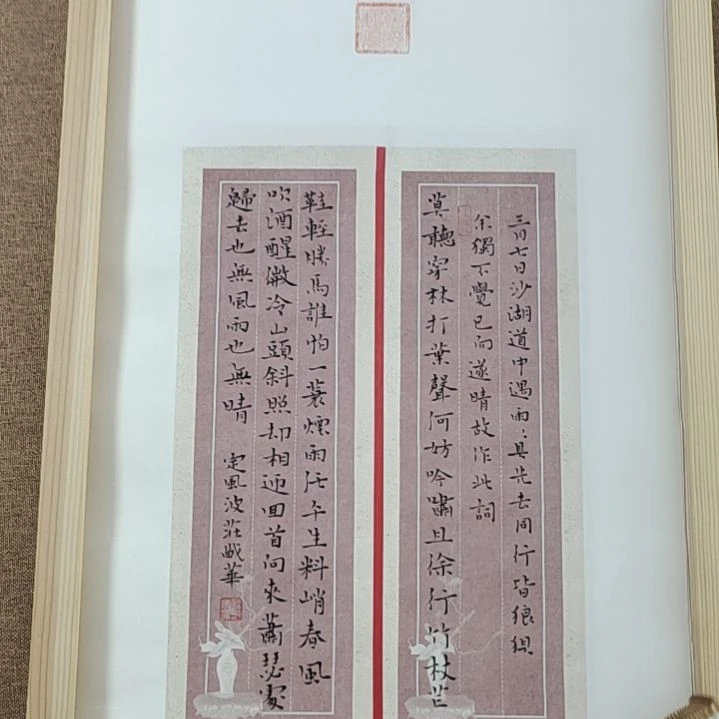 三月七日沙湖道中遇雨：具先去同行皆狼狽
余獨不覺已而遂晴故作此詞
莫聽穿林打葉聲何妨吟嘯且徐行竹杖芒
鞋輕勝馬誰怕一蓑煙雨任平生料峭春風
吹酒醒微冷山頭斜照却相迎回首向來蕭瑟處
歸去也無風雨也無晴
定風波莊
華